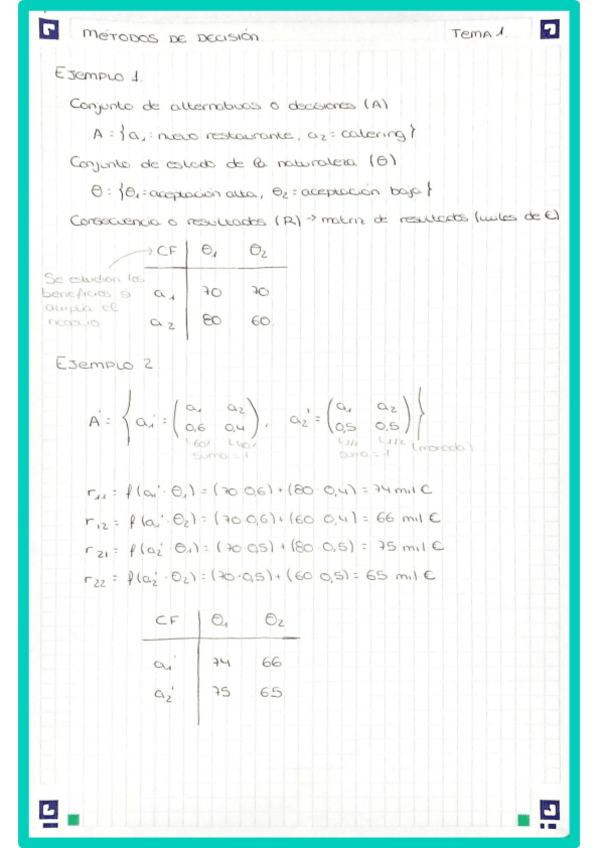 MÉTODOS DE DECISIÓN. TEMA 1.
EJEMPLO 1.
Conjunto de alternativas o decisiones (A)
A = {a₁ = nuevo restaurante, a₂ = catering}
Conjunto de estado de la naturaleza (Θ)
Θ = {Θ₁ = aceptación alta, Θ₂ = aceptación baja}
Consecuencia o resultados (R) → matriz de resultados (miles de €)
CF Θ₁ Θ₂
Se estudian los
beneficios si
amplía el
negocio
a₁ 70 70
a₂ 80 60
EJEMPLO 2
A' = { a₁' = (a₁ a₂
0,6 0,4), a₂' = (a₁ a₂
0,5 0,5) }
60% 40% 1/2 1/2 (moneda)
suma = 1 suma = 1
r₁₁ = f(a₁' · Θ₁) = (70 · 0,6) + (80 · 0,4) = 74 mil €
r₁₂ = f(a₁' · Θ₂) = (70 · 0,6) + (60 · 0,4) = 66 mil €
r₂₁ = f(a₂' · Θ₁) = (70 · 0,5) + (80 · 0,5) = 75 mil €
r₂₂ = f(a₂' · Θ₂) = (70 · 0,5) + (60 · 0,5) = 65 mil €
CF Θ₁ Θ₂
a₁' 74 66
a₂' 75 65